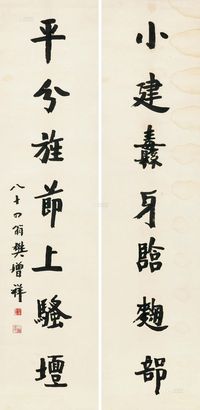 小建纛牙臨麴部
平分旌節上騷壇
八十四翁樊增祥